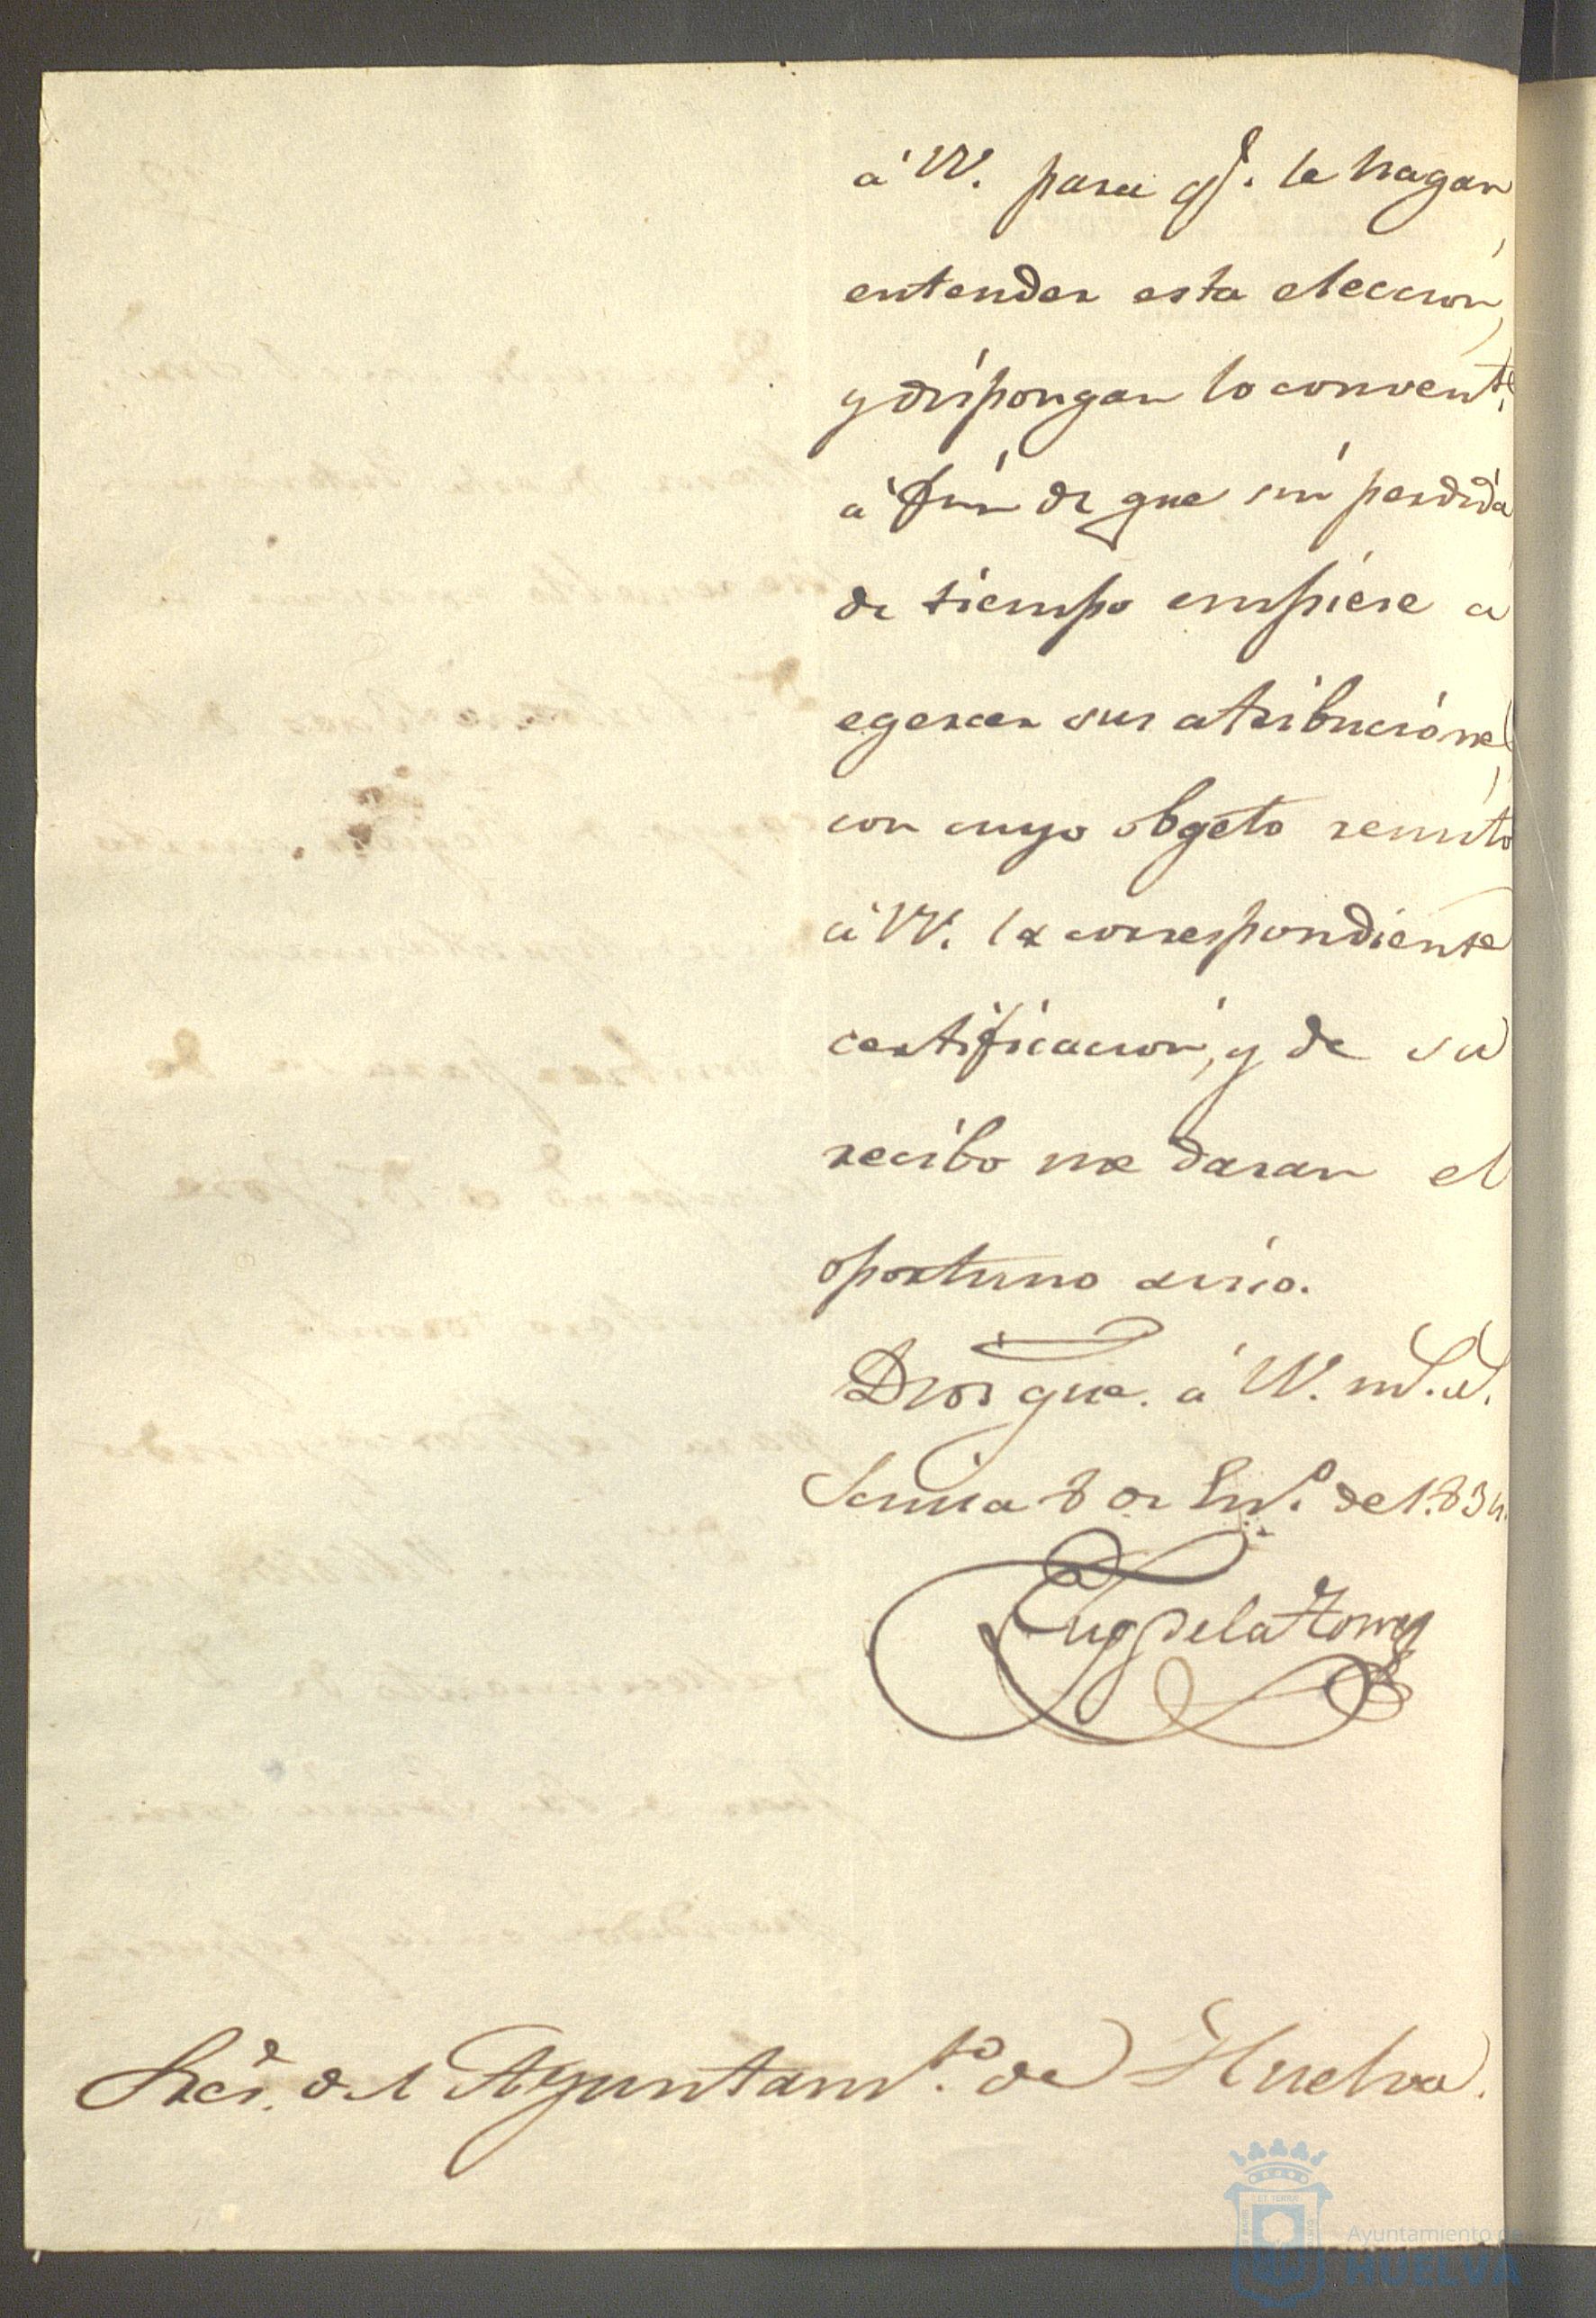 á VV. para q.e le hagan
entender esta eleccion,
y dispongan lo convente.
á fin de que sin perdida
de tiempo empiese a
egercer sus atribuciones,
con cuyo obgeto remito
á VV. la correspondiente
certificacion, y de su
recibo me daran el
oportuno aviso.
Dios gue. á VV. ms. as.
Sevilla 8 de En.o de 1.834.
Eug de la Torre
Sres. del Ayuntam.to de Huelva.
Ayuntamiento de
HUELVA